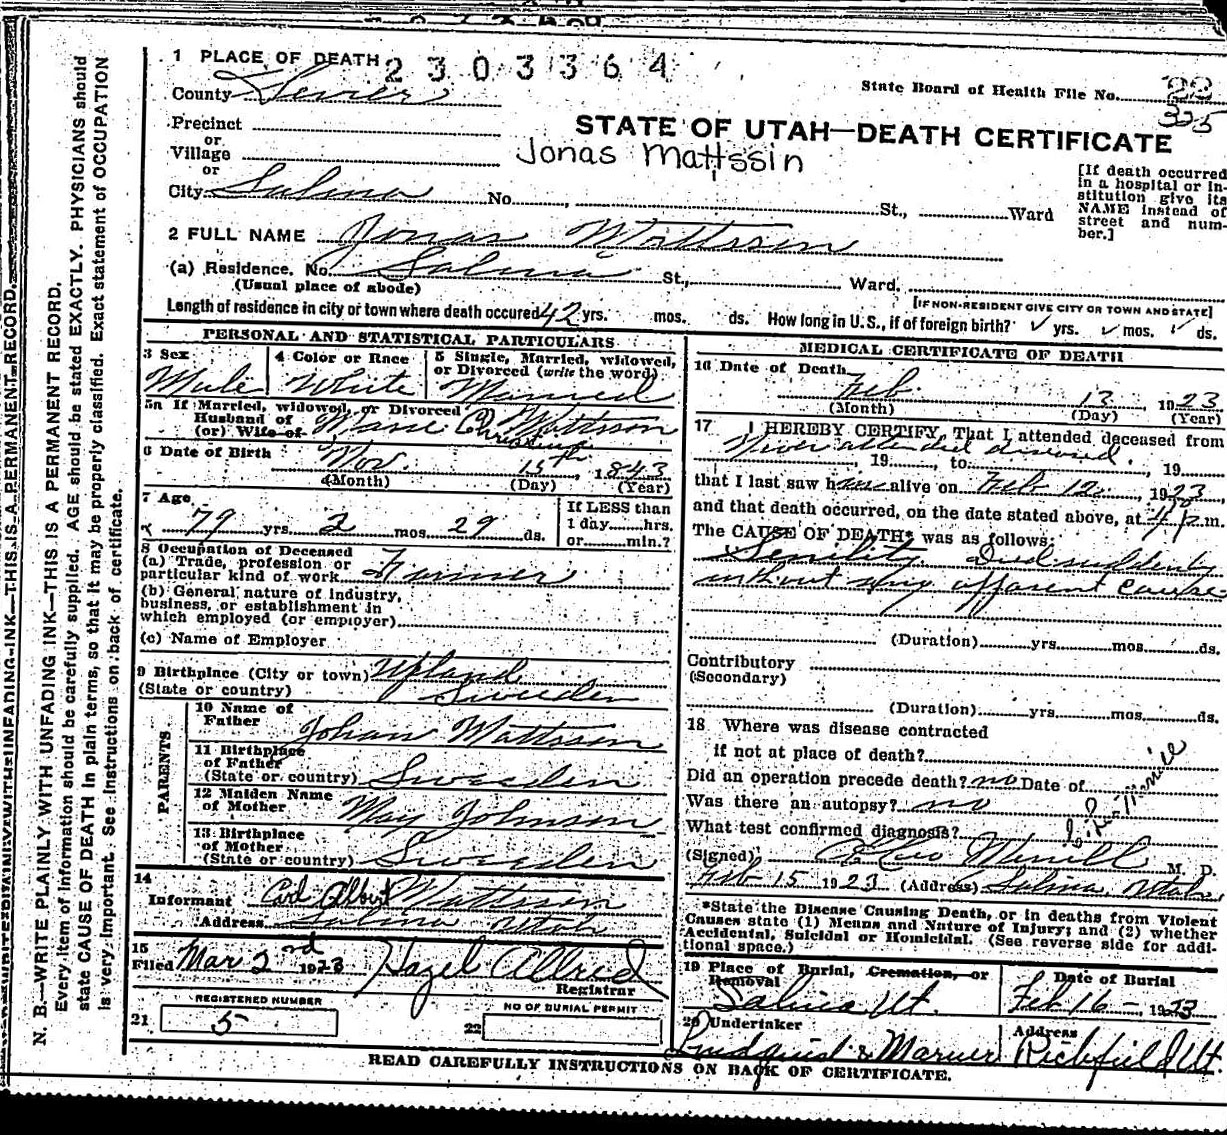 1 PLACE OF DEATH 2303364
State Board of Health File No. 22
325
County Sevier
STATE OF UTAH—DEATH CERTIFICATE
Precinct
or
Village
Jonas Mattssin
or
City Salina No. , St., Ward
[If death occurred in a hospital or institution give its NAME instead of street and number.]
2 FULL NAME Jonas Mattssin
(a) Residence. No. Salina St., Ward.
(Usual place of abode)
[IF NON-RESIDENT GIVE CITY OR TOWN AND STATE]
Length of residence in city or town where death occured 42 yrs. mos. ds. How long in U.S., if of foreign birth? ✓ yrs. ✓ mos. ✓ ds.
PERSONAL AND STATISTICAL PARTICULARS
3 Sex
Male
4 Color or Race
White
5 Single, Married, widowed,
or Divorced (write the word)
Married
5a If Married, widowed, or Divorced
Husband of
(or) Wife of
Mattson
6 Date of Birth
Nov. 15th, 1843
(Month) (Day) (Year)
7 Age
79 yrs. 2 mos. 29 ds.
If LESS than
1 day hrs.
or min.?
8 Occupation of Deceased
(a) Trade, profession or
particular kind of work Farmer
(b) General nature of industry,
business, or establishment in
which employed (or employer)
(c) Name of Employer
9 Birthplace (City or town) Upland
(State or country) Sweeden
PARENTS
10 Name of
Father Johan Mattssin
11 Birthplace
of Father
(State or country) Sweeden
12 Maiden Name
of Mother May Johnson
13 Birthplace
of Mother
(State or country) Sweeden
14
Informant Carl Albert Mattssin
Address Salina Utah
15
Filed Mar 2nd 1923 Hazel Allred
Registrar
REGISTERED NUMBER
21 5
NO OF BURIAL PERMIT
22
MEDICAL CERTIFICATE OF DEATH
16 Date of Death
Feb 13, 1923
(Month) (Day) (Year)
17 I HEREBY CERTIFY, That I attended deceased from
Never attended diseased.
, 19 , to , 19
that I last saw h alive on Feb 12, 1923
and that death occurred, on the date stated above, at 4 p.m.
The CAUSE OF DEATH* was as follows:
Senility Died suddenly
without any apparent cause
(Duration) yrs. mos. ds.
Contributory
(Secondary)
(Duration) yrs. mos. ds.
18 Where was disease contracted
if not at place of death?
Did an operation precede death? no Date of
Was there an autopsy? no
What test confirmed diagnosis?
(Signed) Merrill M. D.
Feb 15 1923 (Address) Salina, Utah
*State the Disease Causing Death, or in deaths from Violent
Causes state (1) Means and Nature of Injury; and (2) whether
Accidental, Suicidal or Homicidal. (See reverse side for additional space.)
19 Place of Burial, Cremation, or
Removal
Salina Ut.
Date of Burial
Feb 16 - 1923
20 Undertaker
& Marner
Address
Richfield Ut.
READ CAREFULLY INSTRUCTIONS ON BACK OF CERTIFICATE.
N. B.—WRITE PLAINLY WITH UNFADING INK—THIS IS A PERMANENT RECORD.
Every item of information should be carefully supplied. AGE should be stated EXACTLY. PHYSICIANS should
state CAUSE OF DEATH in plain terms, so that it may be properly classified. Exact statement of OCCUPATION
is very important. See instructions on back of certificate.